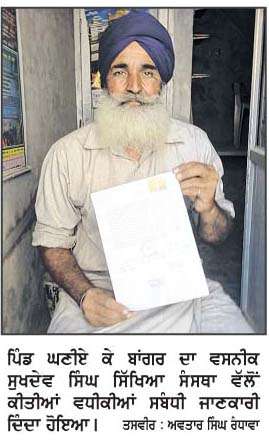 ਪਿੰਡ ਘਣੀਏ ਕੇ ਬਾਂਗਰ ਦਾ ਵਸਨੀਕ
ਸੁਖਦੇਵ ਸਿੰਘ ਸਿੱਖਿਆ ਸੰਸਥਾ ਵੱਲੋਂ
ਕੀਤੀਆਂ ਵਧੀਕੀਆਂ ਸਬੰਧੀ ਜਾਣਕਾਰੀ
ਦਿੰਦਾ ਹੋਇਆ। ਤਸਵੀਰ : ਅਵਤਾਰ ਸਿੰਘ ਰੰਧਾਵਾ